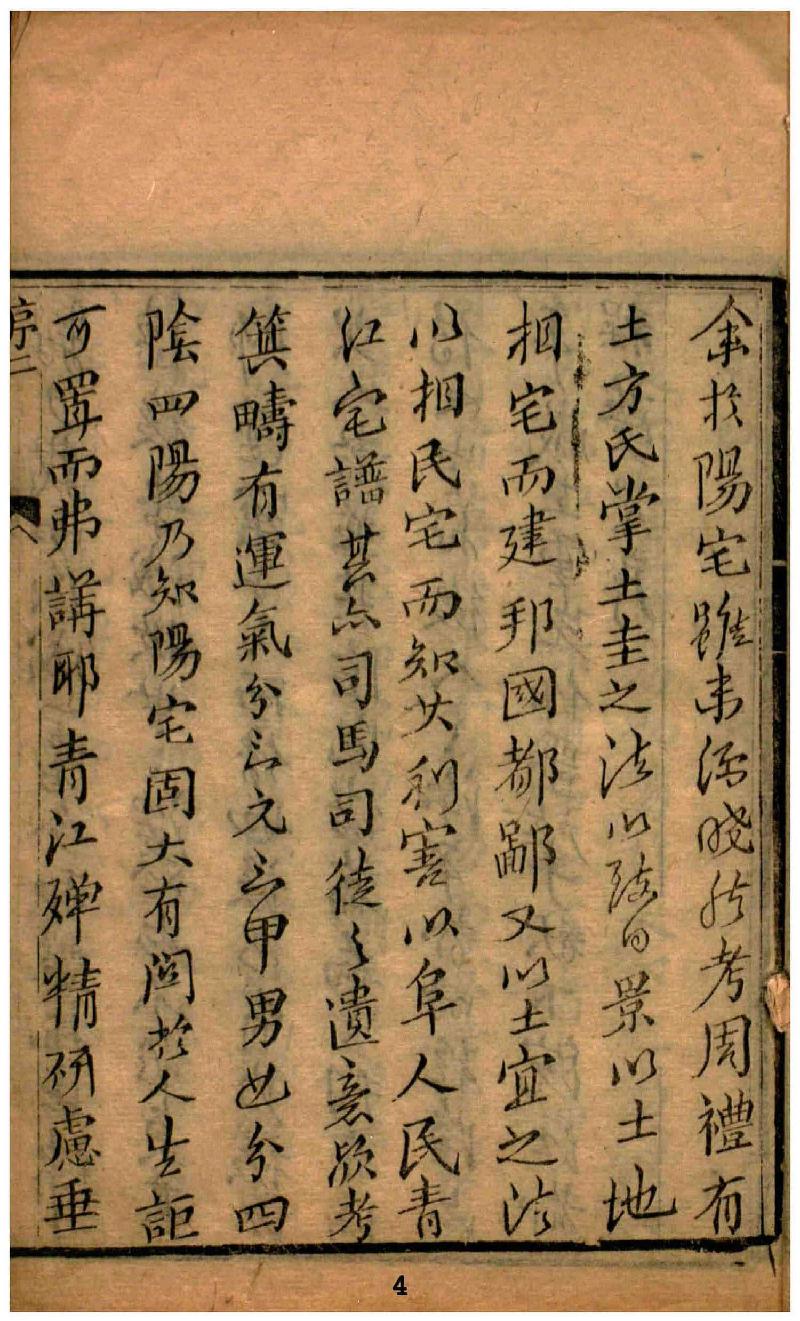 余於陽宅雖未深曉然考周禮有
土方氏掌土圭之法以致日景以土地
相宅而建邦國都鄙又以土宜之法
以相民宅而知其利害以阜人民青
江宅譜其亦司馬司徒之遺意歟考
箕疇有運氣分三元三甲男女分四
陰四陽乃知陽宅固大有関於人生詎
可置而弗講耶青江殫精研慮垂
序二
4